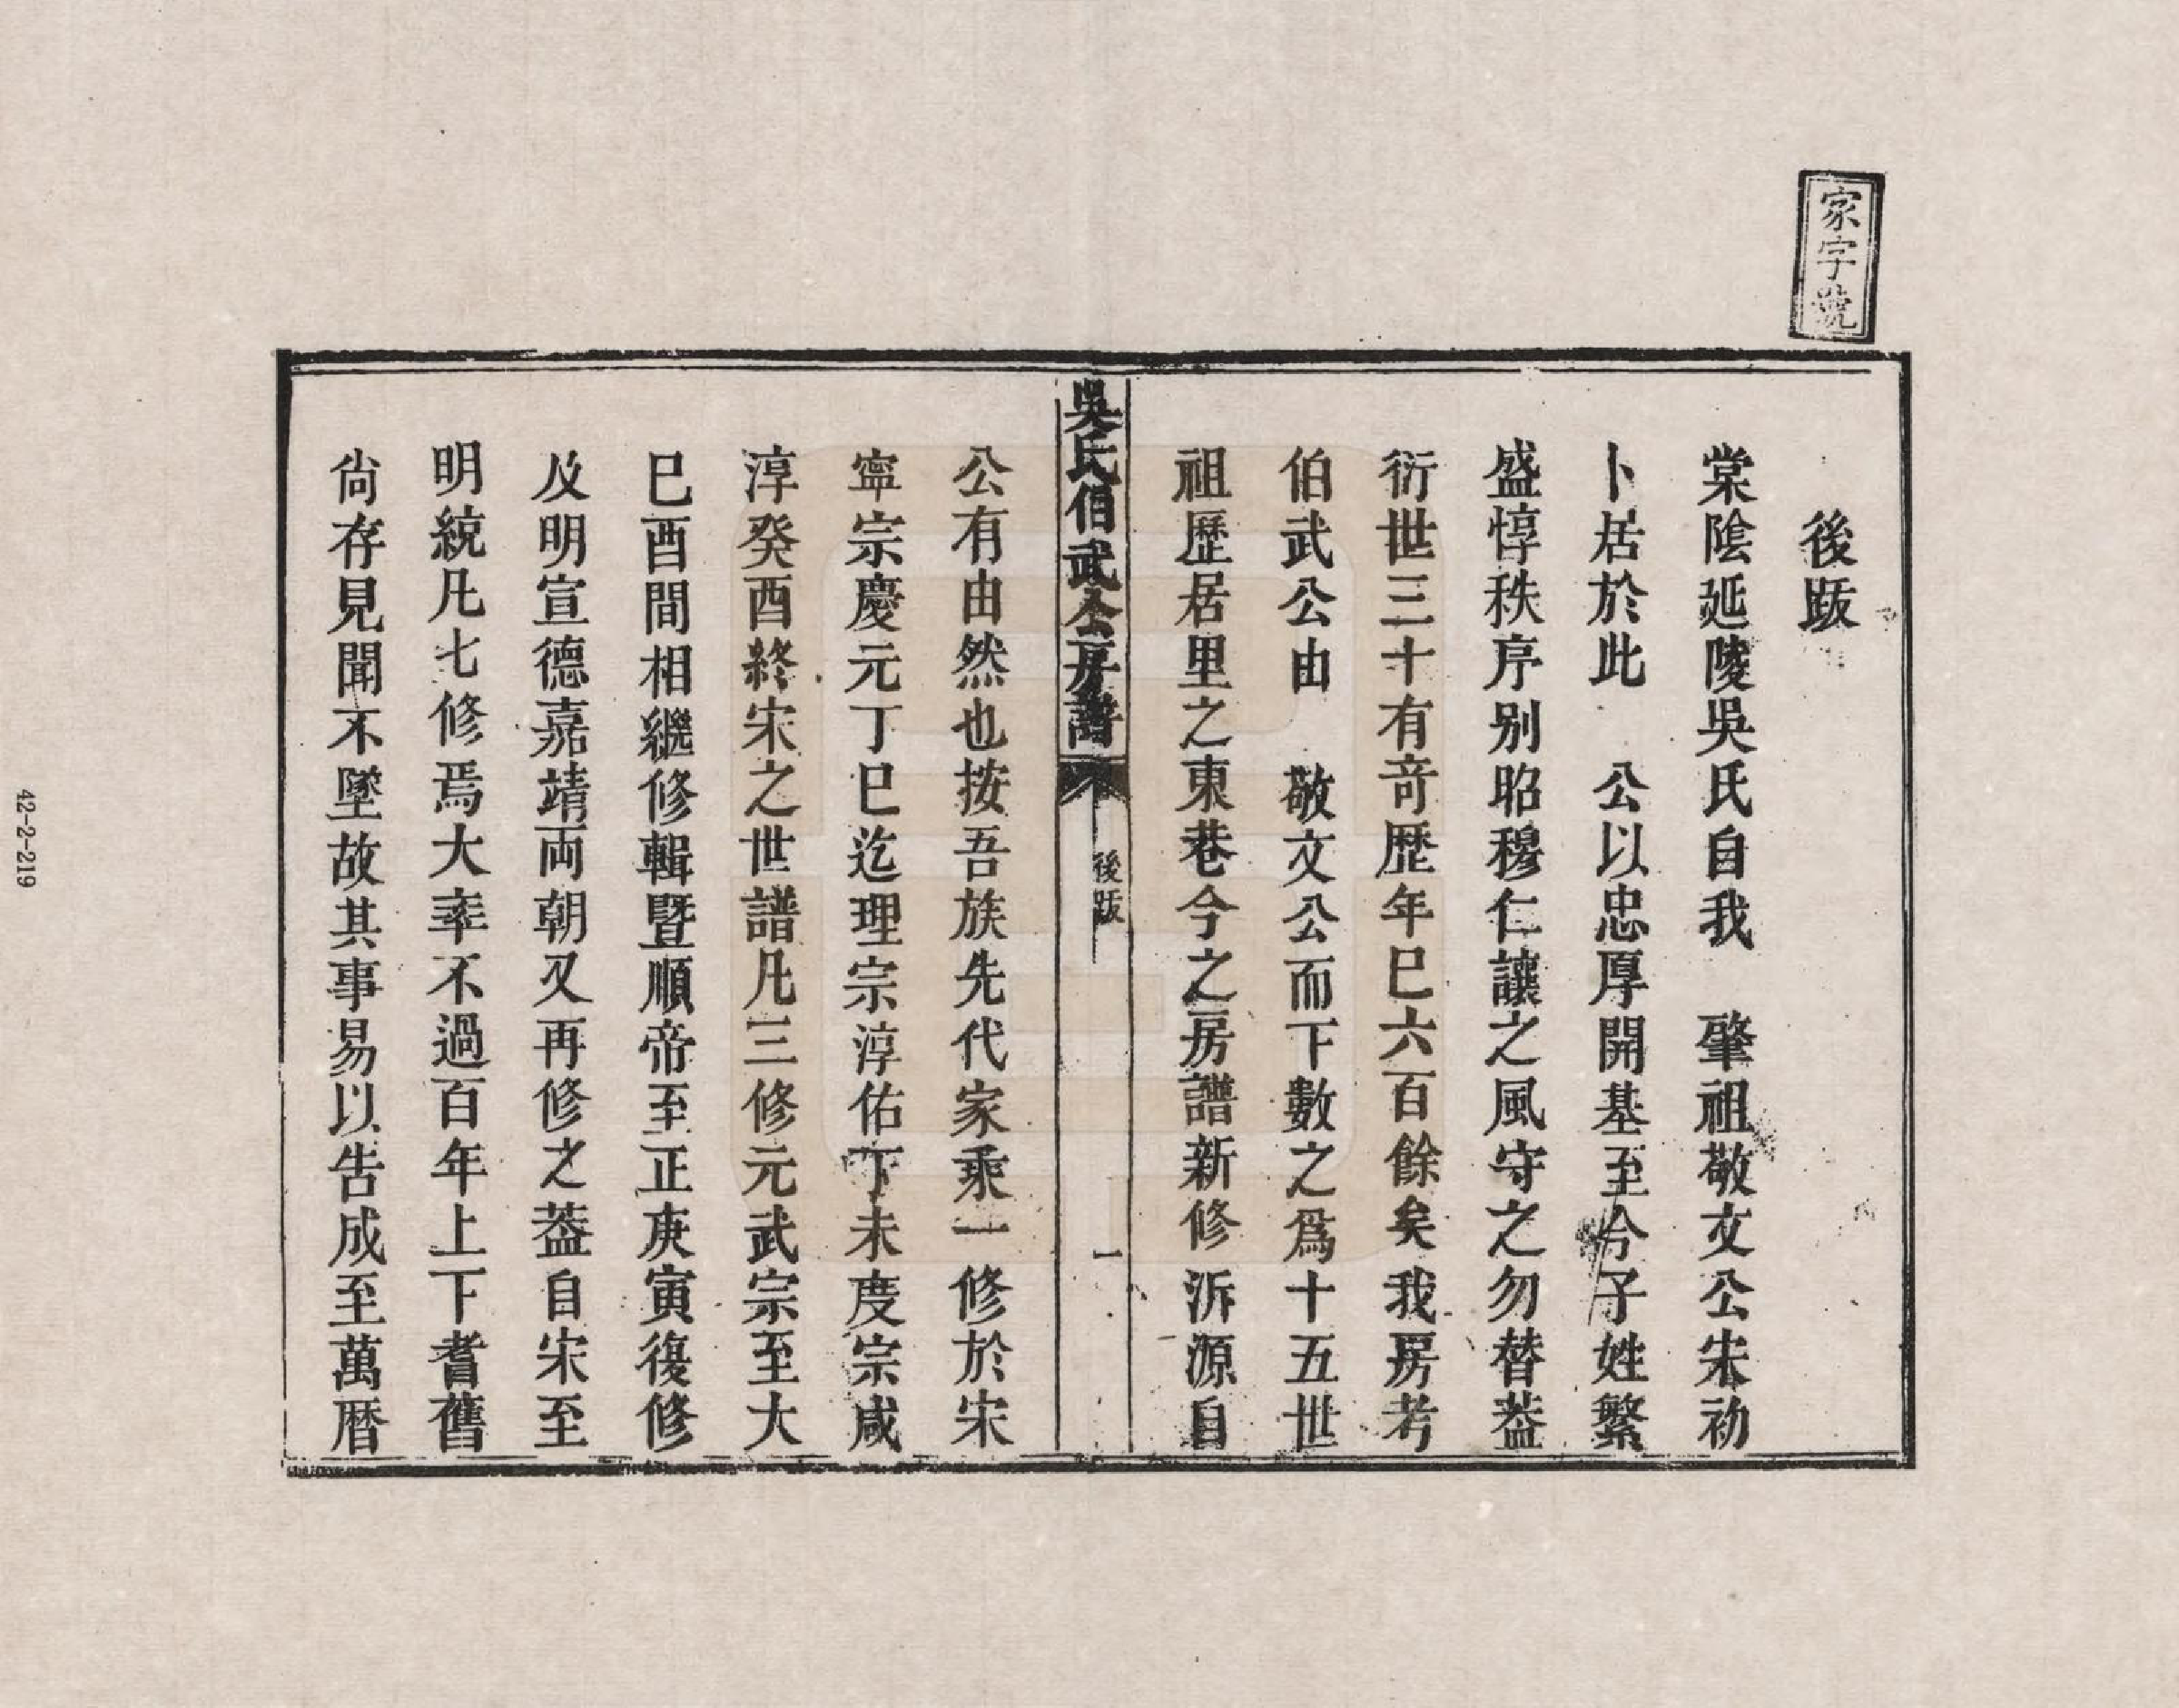 家字號
後跋
棠陰延陵吳氏自我　肇祖敬文公宋初
卜居於此　公以忠厚開基至今子姓繁
盛惇秩序别昭穆仁讓之風守之勿替葢
衍世三十有奇歷年巳六百餘矣我房考
伯武公由　敬文公而下數之爲十五世
祖歷居里之東巷今之房譜新修泝源自
吳氏伯武公房譜
後跋
一
公有由然也按吾族先代家乘一修於宋
寧宗慶元丁巳迄理宗淳佑丁未度宗咸
淳癸酉終宋之世譜凡三修元武宗至大
巳酉間相繼修輯暨順帝至正庚寅復修
及明宣德嘉靖両朝又再修之葢自宋至
明統凡七修焉大率不過百年上下耆舊
尙存見聞不墜故其事易以告成至萬曆
42-2-219